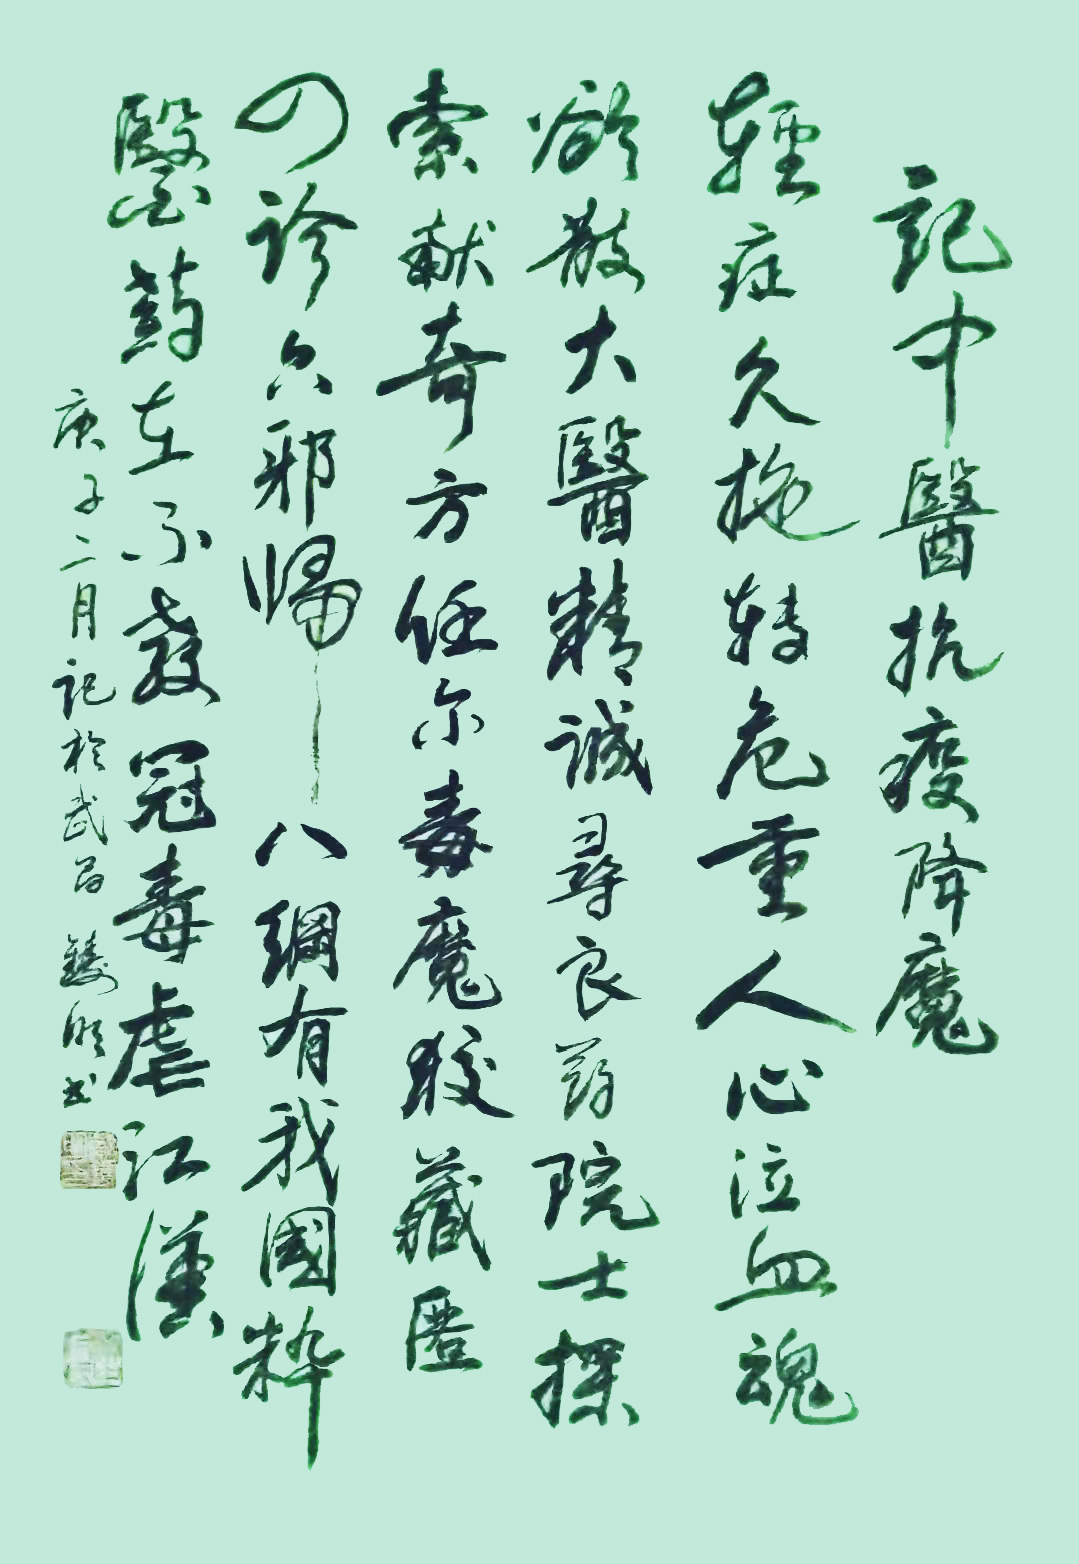 記中醫抗疫降魔
輕症久拖转危重人心泣血魂
欲散大醫精誠尋良药院士探
索献奇方任尔毒魔狡藏匿
四诊六邪歸一八綱有我國粹
醫药在不教冠毒虐江漢
庚子二月記於武昌